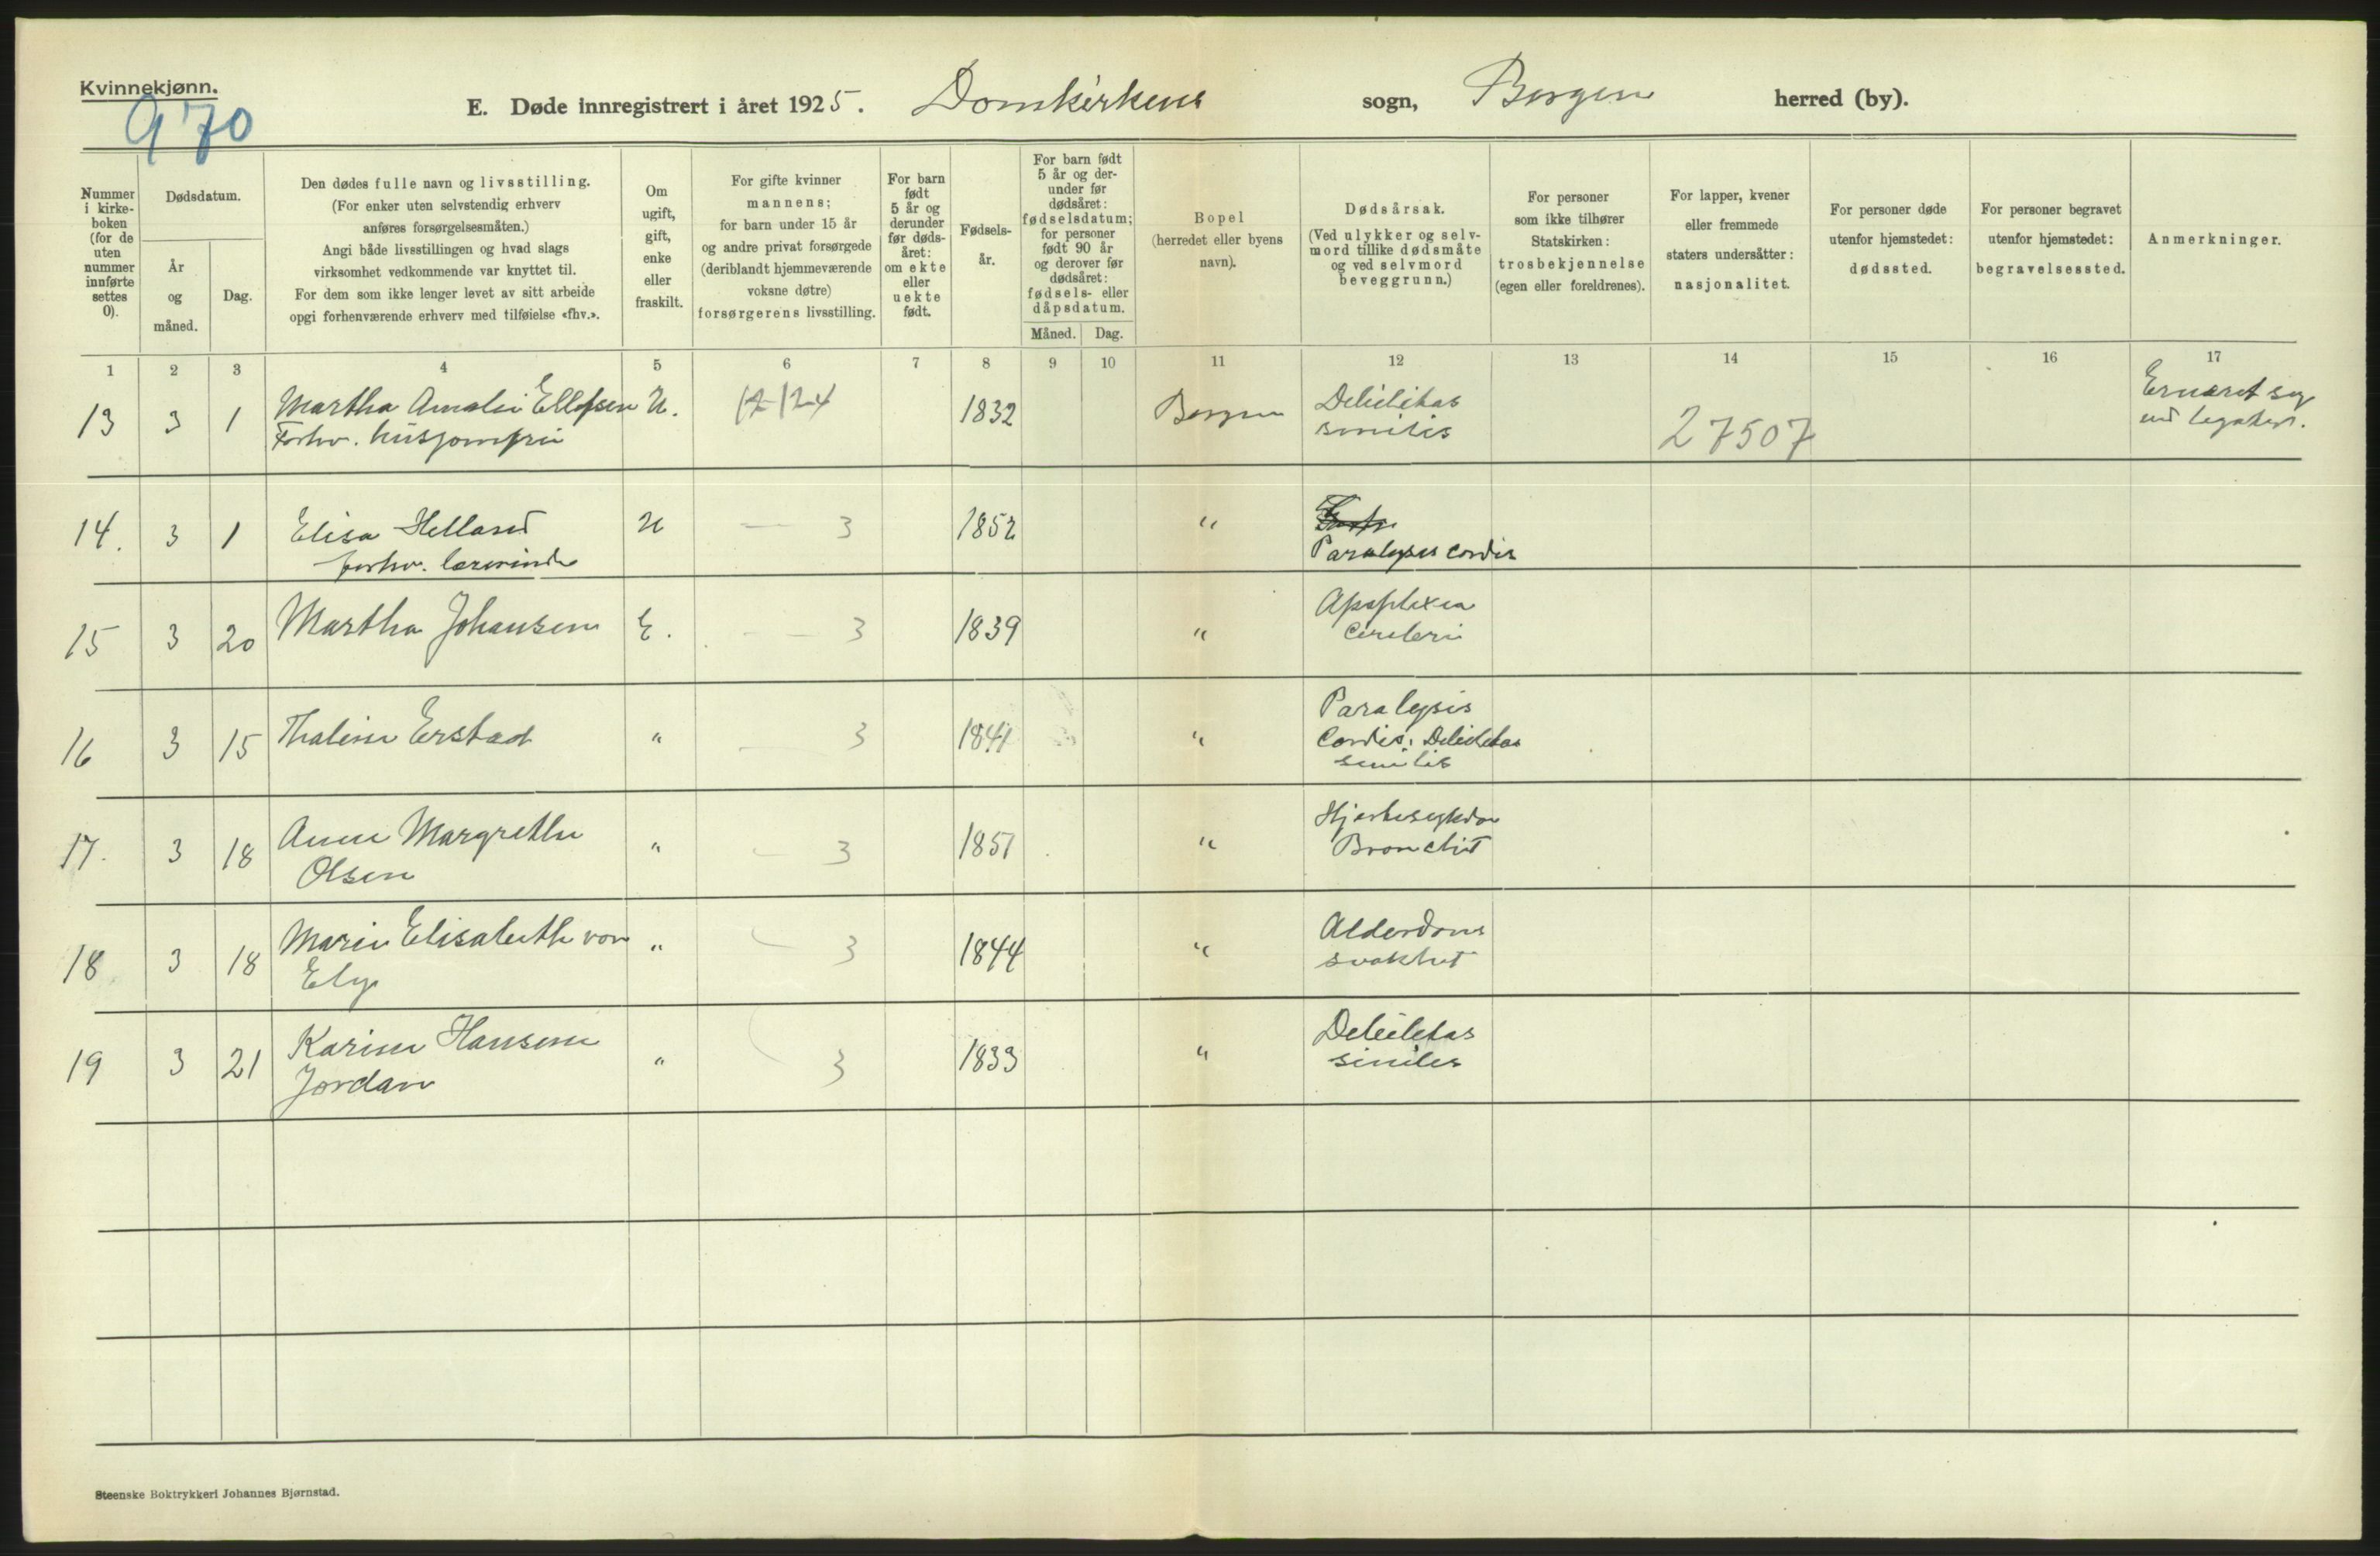 Kvinnekjønn.
970
E. Døde innregistrert i året 1925. Domkirkens sogn, Bergen herred (by).
Nummer i kirke-boken (for de uten nummer innførte settes 0).
Dødsdatum.
År og måned.
Dag.
Den dødes fulle navn og livsstilling.
(For enker uten selvstendig erhverv
anføres forsørgelsesmåten.)
Angi både livsstillingen og hvad slags
virksomhet vedkommende var knyttet til.
For dem som ikke lenger levet av sitt arbeide
opgi forhenværende erhverv med tilføielse «fhv.».
Om ugift, gift, enke eller fraskilt.
For gifte kvinner
mannens;
for barn under 15 år
og andre privat forsørgede
(deriblandt hjemmeværende
voksne døtre)
forsørgerens livsstilling.
For barn født 5 år og derunder før døds-året: om ekte eller uekte født.
Fødsels-år.
For barn født
5 år og der-
under før
dødsåret:
fødselsdatum;
for personer
født 90 år
og derover før
dødsåret:
fødsels- eller
dåpsdatum.
Måned. Dag.
Bopel
(herredet eller byens
navn).
Dødsårsak.
(Ved ulykker og selv-
mord tillike dødsmåte
og ved selvmord
beveggrunn.)
For personer
som ikke tilhører
Statskirken:
trosbekjennelse
(egen eller foreldrenes).
For lapper, kvener
eller fremmede
staters undersåtter:
nasjonalitet.
For personer døde
utenfor hjemstedet:
dødssted.
For personer begravet
utenfor hjemstedet:
begravelsessted.
Anmerkninger.
1 2 3 4 5 6 7 8 9 10 11 12 13 14 15 16 17
13 3 1 Martha Amalie Ellefsen U. 12124 1832 Bergen Debilitas 27507 Ernæret sig
Forhv. husjomfru senilis ved legater.
14. 3 1 Elisa Helland U — 3 1852 "
forhv. lærerinde Paralysis cordis
15 3 20 Martha Johansen E. — 3 1839 " Apoplexia
cerebri
16 3 15 Thalina Erstad " — 3 1841 " Paralysis
Cordis; Debilitas
senilis
17. 3 18 Anne Margrethe " — 3 1851 " Hjertesygdom
Olsen Bronchit
18 3 18 Marie Elisabeth von " — 3 1844 " Alderdoms
Ely svakhet
19 3 21 Karine Hansene " 3 1833 " Debilitas
Jordan senilis
Steenske Boktrykkeri Johannes Bjørnstad.